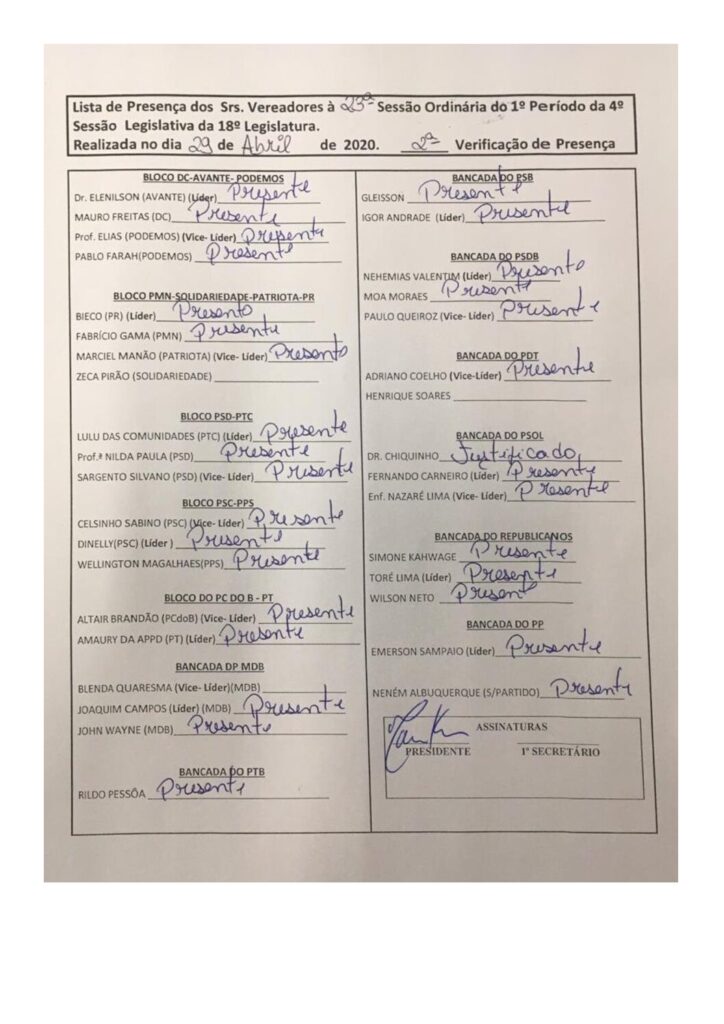 Lista de Presença dos Srs. Vereadores à 23ª Sessão Ordinária do 1º Período da 4º
Sessão Legislativa da 18º Legislatura.
Realizada no dia 29 de Abril de 2020. 2ª Verificação de Presença
BLOCO DC-AVANTE- PODEMOS
Dr. ELENILSON (AVANTE) (Líder) Presente
MAURO FREITAS (DC) Presente
Prof. ELIAS (PODEMOS) (Vice- Líder) Presente
PABLO FARAH(PODEMOS) Presente
BLOCO PMN-SOLIDARIEDADE-PATRIOTA-PR
BIECO (PR) (Líder) Presente
FABRÍCIO GAMA (PMN) Presente
MARCIEL MANÃO (PATRIOTA) (Vice- Líder) Presente
ZECA PIRÃO (SOLIDARIEDADE)
BLOCO PSD-PTC
LULU DAS COMUNIDADES (PTC) (Líder) Presente
Prof.ª NILDA PAULA (PSD) Presente
SARGENTO SILVANO (PSD) (Vice- Líder) Presente
BLOCO PSC-PPS
CELSINHO SABINO (PSC) (Vice- Líder) Presente
DINELLY(PSC) (Líder ) Presente
WELLINGTON MAGALHAES(PPS) Presente
BLOCO DO PC DO B - PT
ALTAIR BRANDÃO (PCdoB) (Vice- Líder) Presente
AMAURY DA APPD (PT) (Líder) Presente
BANCADA DP MDB
BLENDA QUARESMA (Vice- Líder)(MDB)
JOAQUIM CAMPOS (Líder) (MDB) Presente
JOHN WAYNE (MDB) Presente
BANCADA DO PTB
RILDO PESSÔA Presente
BANCADA DO PSB
GLEISSON Presente
IGOR ANDRADE (Líder) Presente
BANCADA DO PSDB
NEHEMIAS VALENTIM (Líder) Presente
MOA MORAES Presente
PAULO QUEIROZ (Vice- Líder) Presente
BANCADA DO PDT
ADRIANO COELHO (Vice-Líder) Presente
HENRIQUE SOARES
BANCADA DO PSOL
DR. CHIQUINHO Justificado
FERNANDO CARNEIRO (Líder) Presente
Enf. NAZARÉ LIMA (Vice- Líder) Presente
BANCADA DO REPUBLICANOS
SIMONE KAHWAGE Presente
TORÉ LIMA (Líder) Presente
WILSON NETO Present
BANCADA DO PP
EMERSON SAMPAIO (Líder) Presente
NENÉM ALBUQUERQUE (S/PARTIDO) Presente
ASSINATURAS
PRESIDENTE 1º SECRETÁRIO